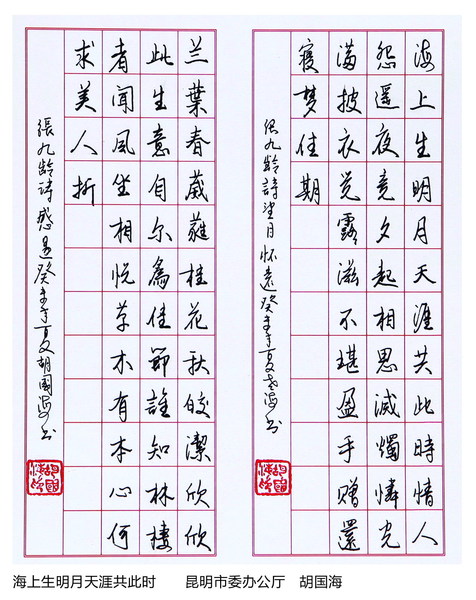 海上生明月天涯共此時情人
怨遥夜竟夕起相思滅燭憐光
滿披衣觉露滋不堪盈手赠還
寝梦佳期
張九龄詩望月怀遠癸未年夏海书
兰葉春葳蕤桂花秋皎潔欣欣
此生意自尔為佳節誰知林棲
者闻風坐相悦草木有本心何
求美人折
張九龄詩感遇癸未年夏胡國海书
海上生明月天涯共此时 昆明市委办公厅 胡国海